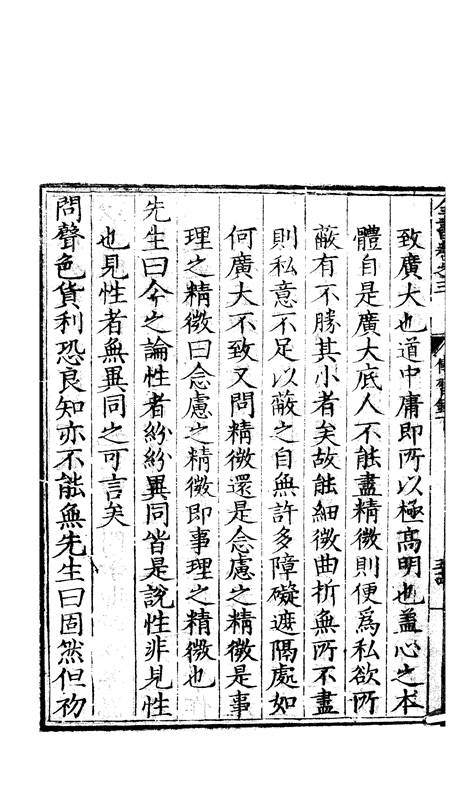 全書卷之三 傳習錄下
致廣大也道中庸即所以極高明也蓋心之本
體自是廣大底人不能盡精微則便爲私欲所
蔽有不勝其小者矣故能細微曲折無所不盡
則私意不足以蔽之自無許多障礙遮隔處如
何廣大不致又問精微還是念慮之精微是事
理之精微曰念慮之精微即事理之精微也
先生曰今之論性者紛紛異同皆是說性非見性
也見性者無異同之可言矣
問聲色貨利恐良知亦不能無先生曰固然但初